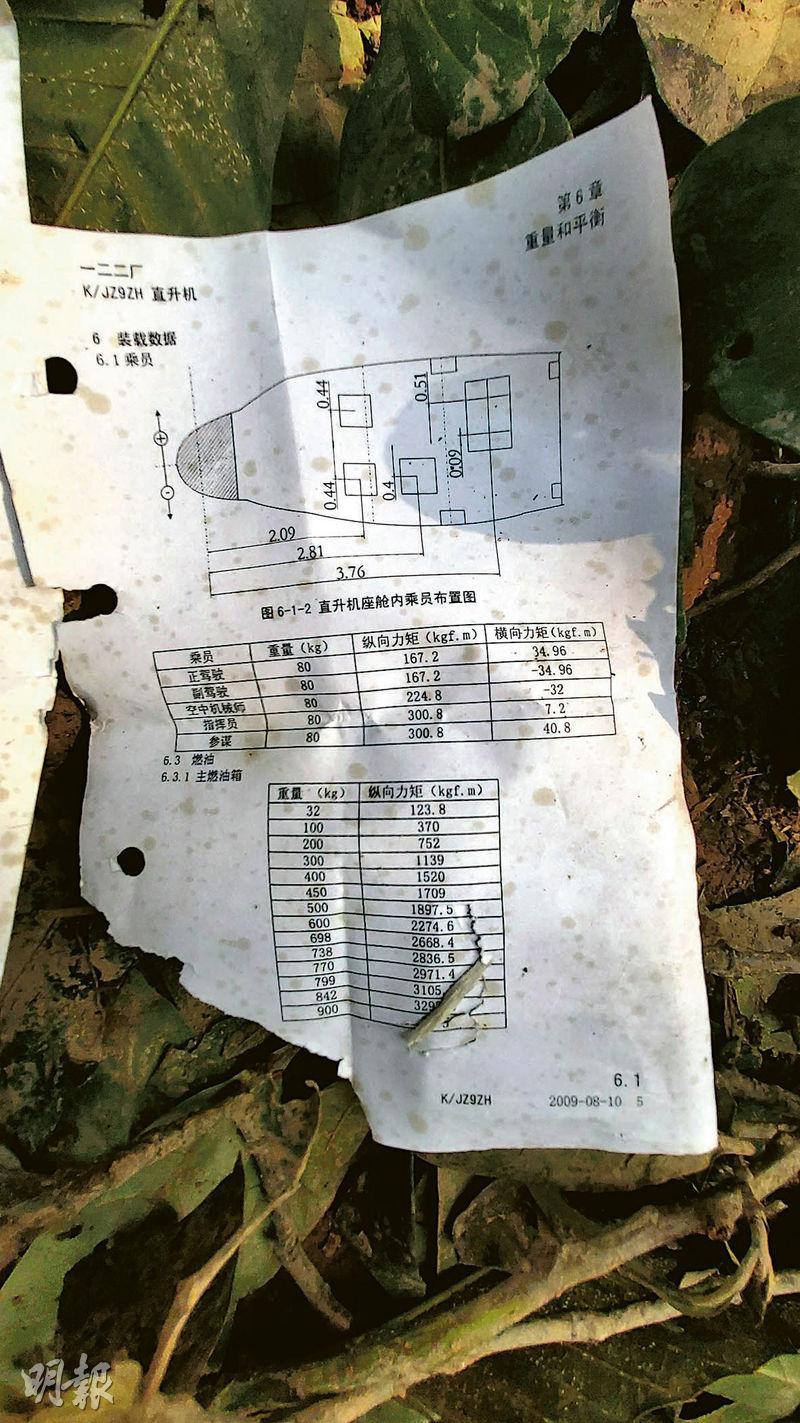 第6章
重量和平衡
一二二厂
K/JZ9ZH 直升机
6 装载数据
6.1乘员
0.44
0.51
0.44
0.4
0.09
2.09
2.81
3.76
图6-1-2 直升机座舱内乘员布置图
乘员 重量(kg) 纵向力矩(kgf.m) 横向力矩(kgf.m)
正驾驶 80 167.2 34.96
副驾驶 80 167.2 -34.96
空中机械师 80 224.8 -32
指挥员 80 300.8 7.2
参谋 80 300.8 40.8
6.3 燃油
6.3.1 主燃油箱
重量 (kg) 纵向力矩(kgf.m)
32 123.8
100 370
200 752
300 1139
400 1520
450 1709
500 1897.5
600 2274.6
698 2668.4
738 2836.5
770 2971.4
799 3105
842
900
6.1
K/JZ9ZH 2009-08-10 5
明報